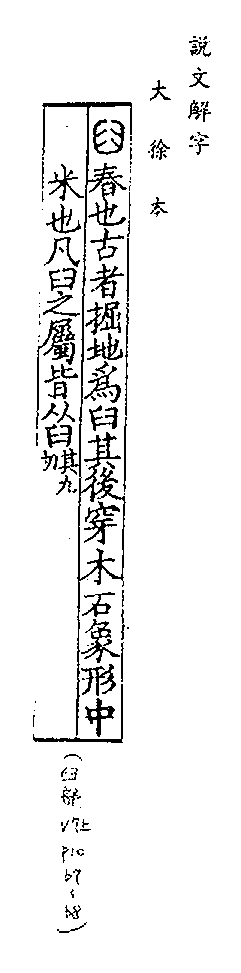 說文解字
大徐本
臼舂也古者掘地爲臼其後穿木石象形中
米也凡臼之屬皆从臼其九切
(臼部 V7上 P10 b7~b8)